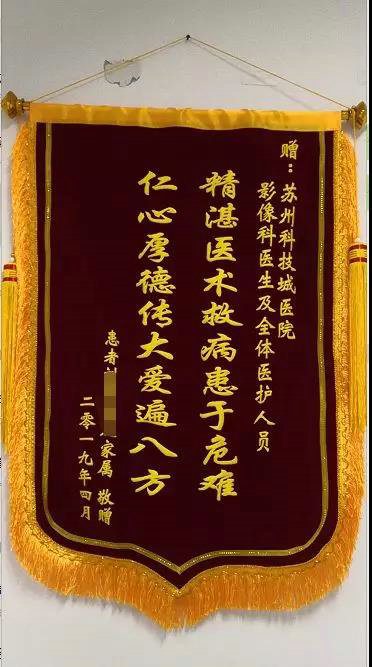 赠：苏州科技城医院
影像科医生及全体医护人员
精湛医术救病患于危难
仁心厚德传大爱遍八方
患者 家属 敬赠
二零一九年四月